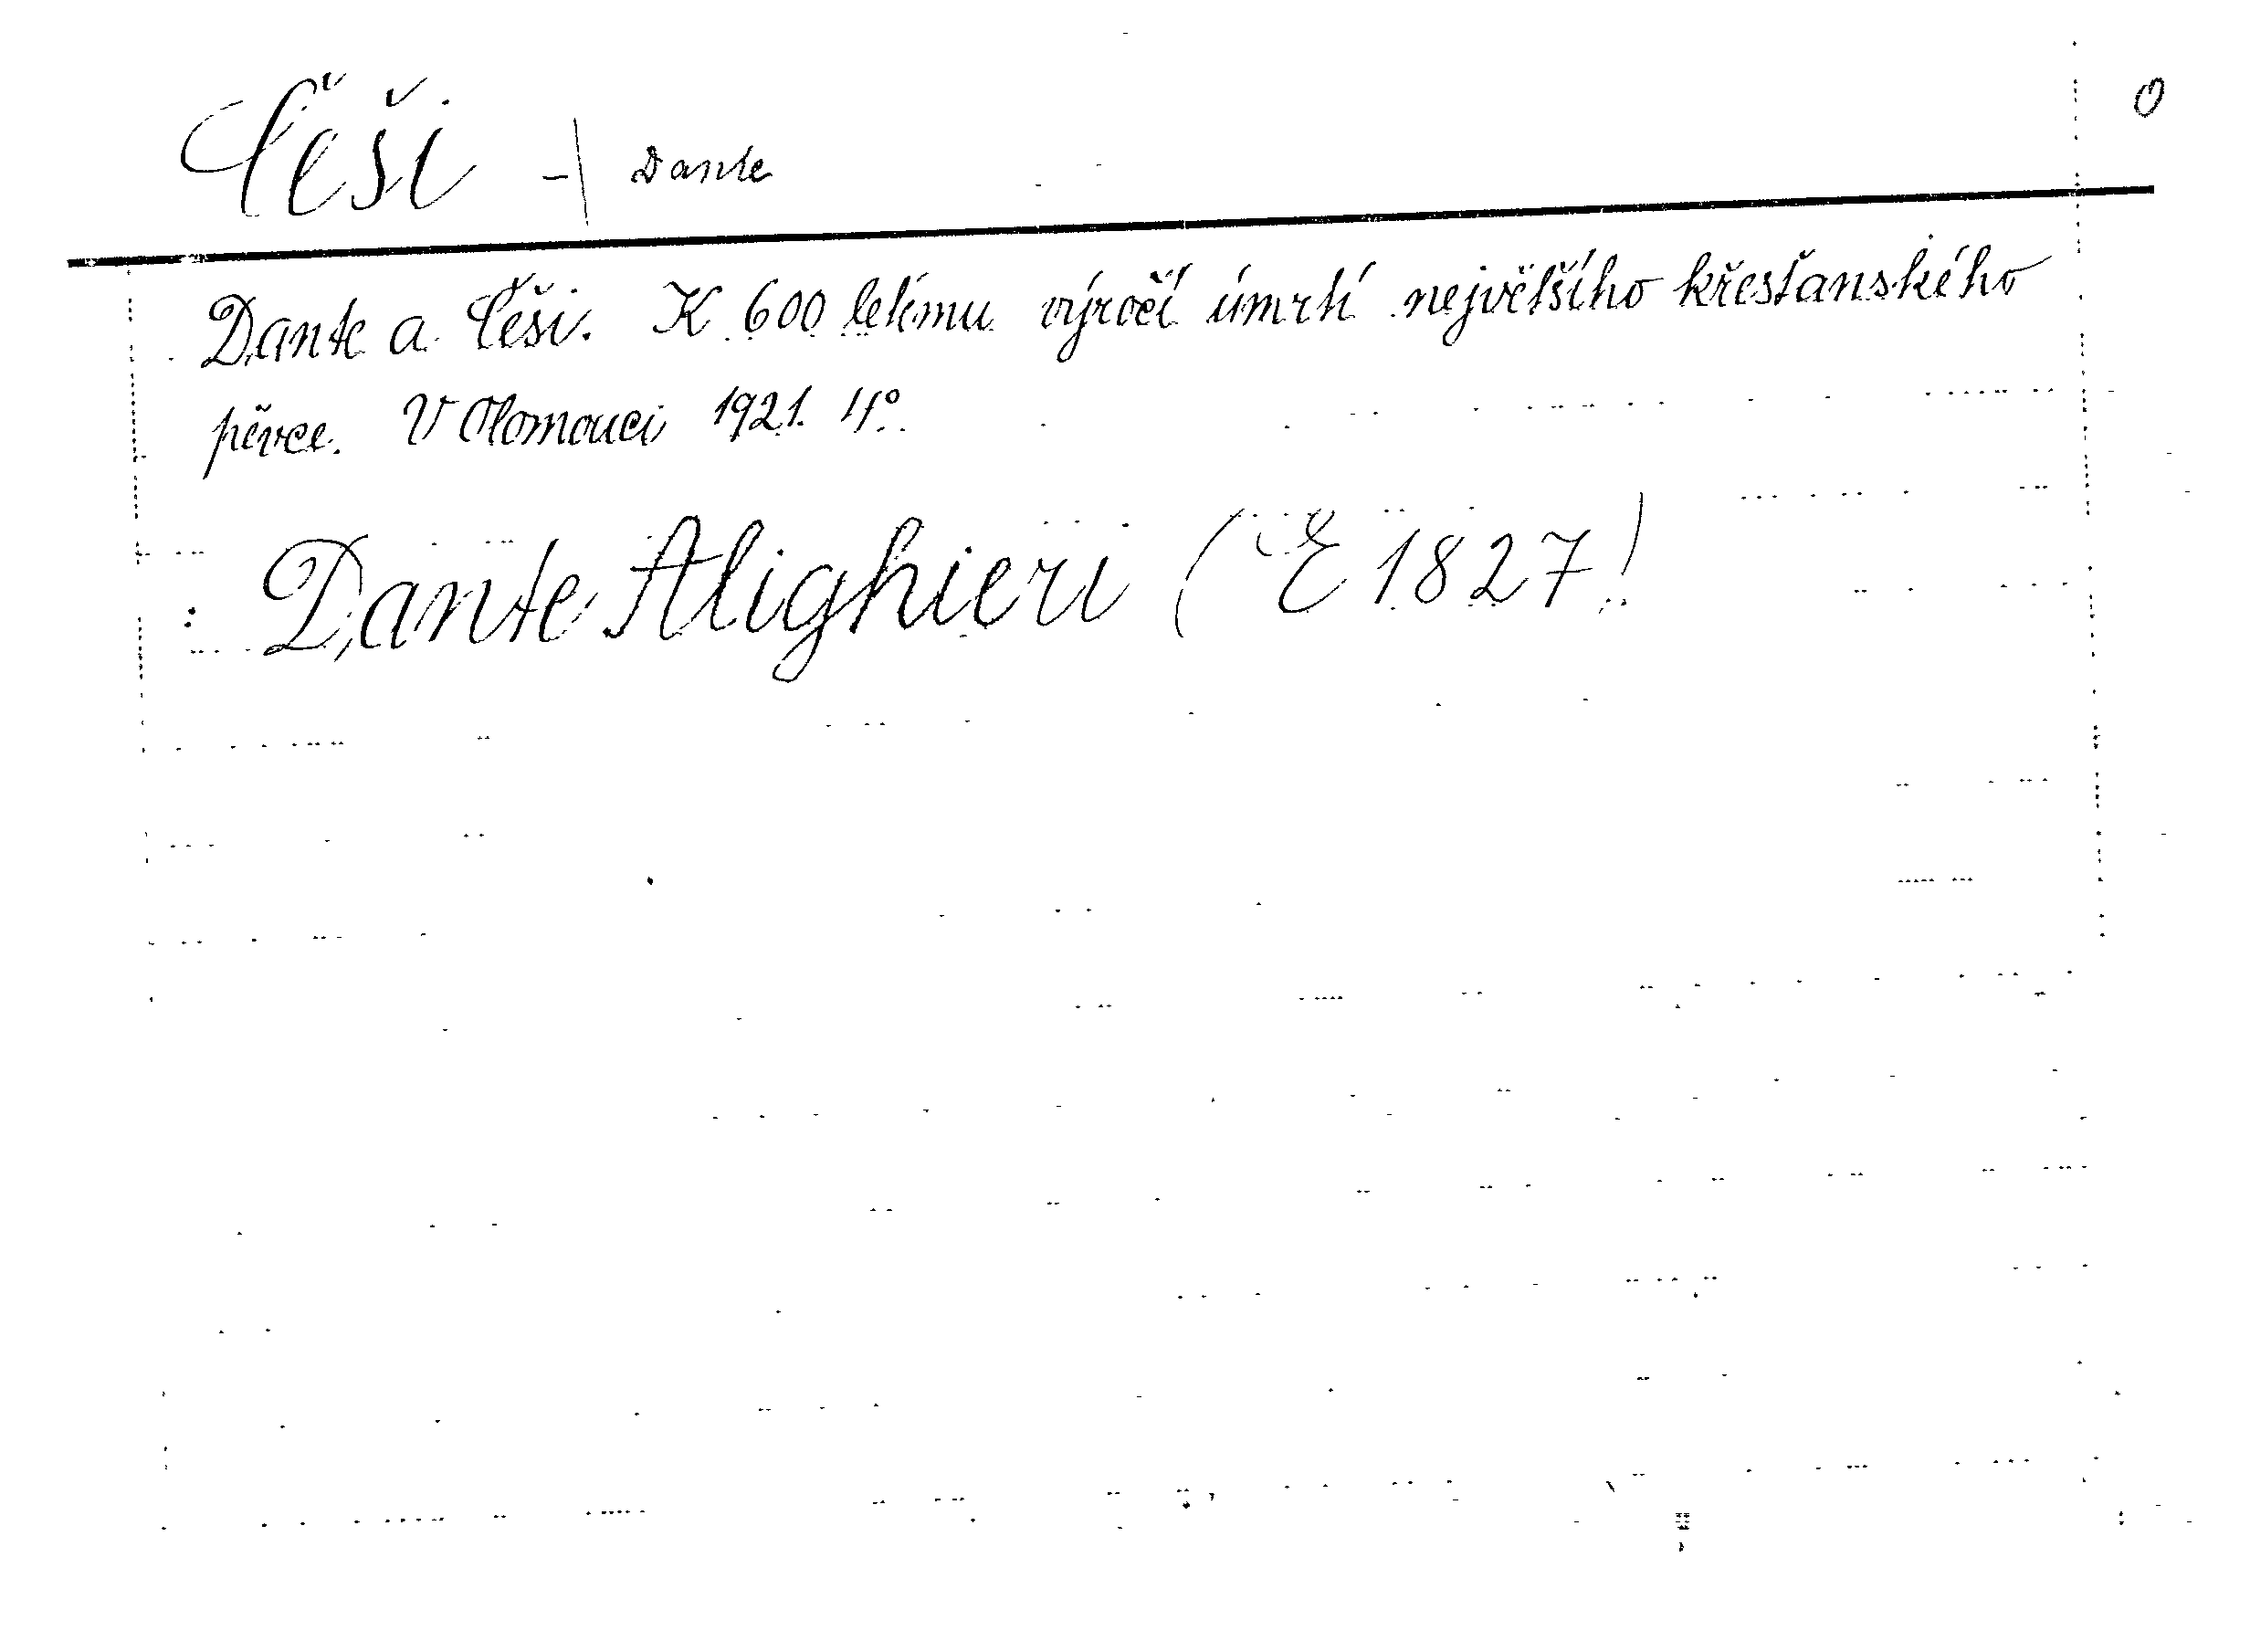 Češi - | Dante
O
Dante a Češi. K 600 letému výročí úmrtí největšího křesťanského
pěvce. V Olomouci 1921. 4°.
: Dante Alighieri (E 1827)